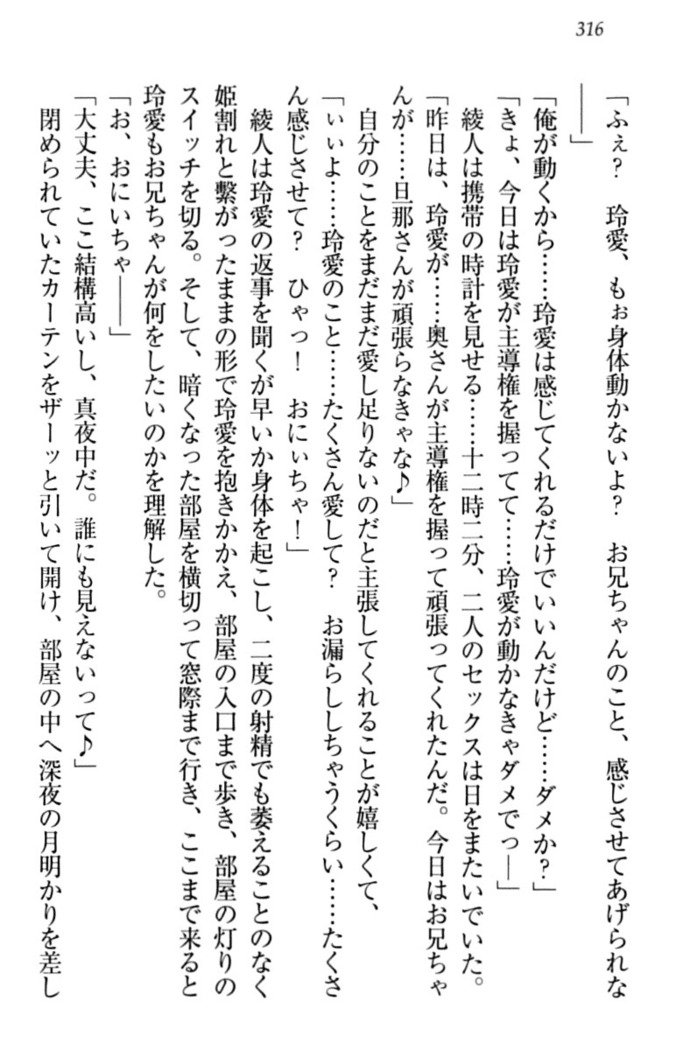 316
「ふぇ？　玲愛、もぉ身体動かないよ？　お兄ちゃんのこと、感じさせてあげられな
――」
「俺が動くから……玲愛は感じてくれるだけでいいんだけど……ダメか？」
「きょ、今日は玲愛が主導権を握ってて……玲愛が動かなきゃダメでっ――」
綾人は携帯の時計を見せる……十二時二分、二人のセックスは日をまたいでいた。
「昨日は、玲愛が……奥さんが主導権を握って頑張ってくれたんだ。今日はお兄ちゃ
んが……旦那さんが頑張らなきゃな♪」
自分のことをまだまだ愛し足りないのだと主張してくれることが嬉しくて、
「ぃぃよ……玲愛のこと……たくさん愛して？　お漏らししちゃうくらい……たくさ
ん感じさせて？　ひゃっ！　おにぃちゃ！」
綾人は玲愛の返事を聞くが早いか身体を起こし、二度の射精でも萎えることのなく
姫割れと繋がったままの形で玲愛を抱きかかえ、部屋の入口まで歩き、部屋の灯りの
スイッチを切る。そして、暗くなった部屋を横切って窓際まで行き、ここまで来ると
玲愛もお兄ちゃんが何をしたいのかを理解した。
「お、おにいちゃ――」
「大丈夫、ここ結構高いし、真夜中だ。誰にも見えないって♪」
閉められていたカーテンをザーッと引いて開け、部屋の中へ深夜の月明かりを差し